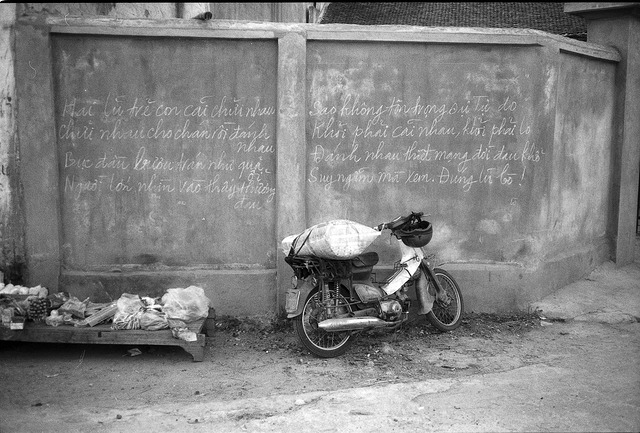 Hai lũ trẻ con cãi chửi nhau
Chửi nhau cho chán rồi đánh
nhau
Bực đầu hàn như quả
Người lớn nhìn vào thấy
đau
Sao không tôn trọng sự tự do
Khỏi phải cãi nhau, khỏi phải lo
Đánh nhau thiệt mạng đời đau khổ
Suy ngẫm mà xem. Đúng lũ bò!